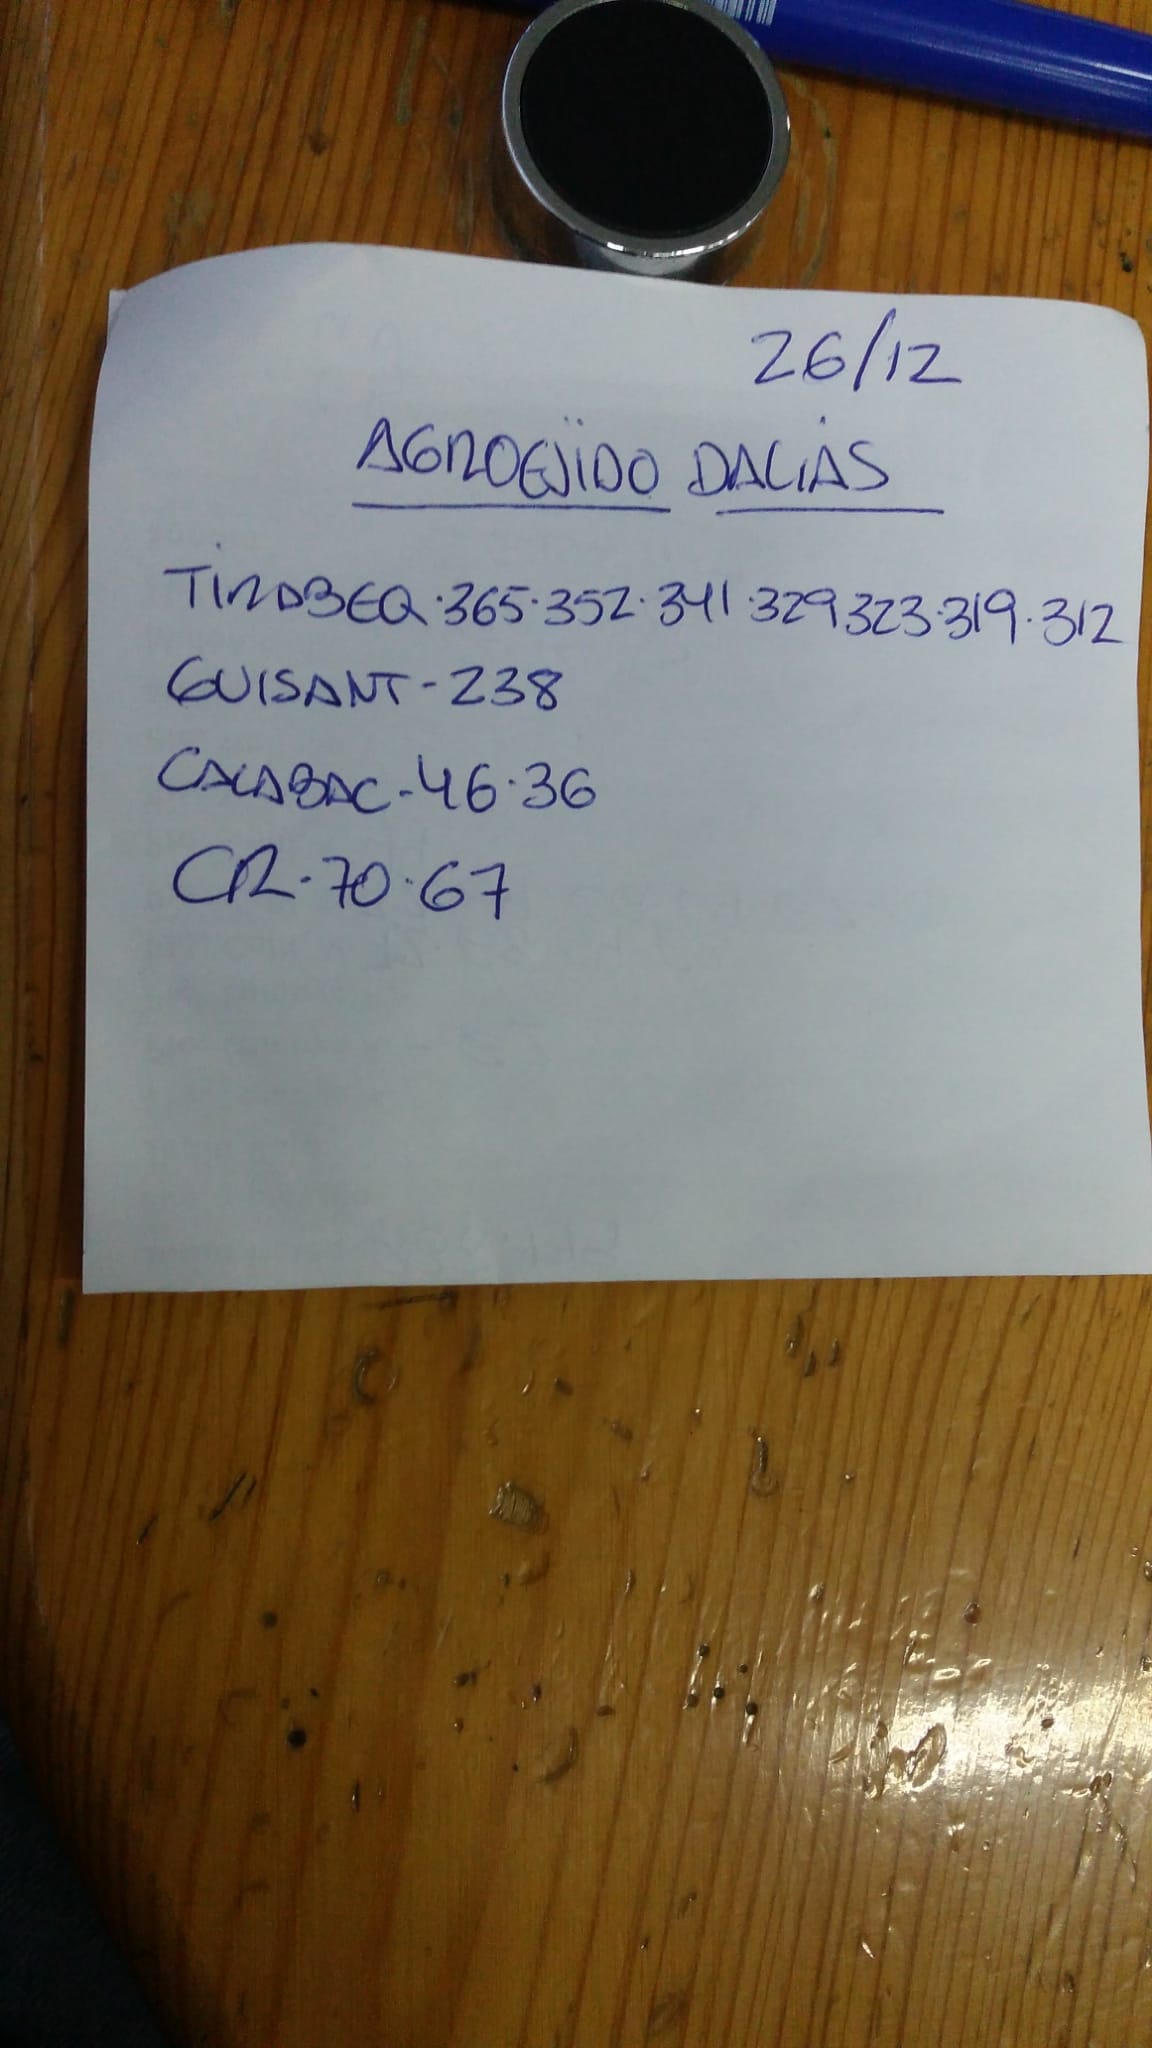 26/12
AGROEJIDO DALIAS
TIRABEQ·365·352·341·329 323·319·312
GUISANT-238
CALABAC-46·36
CR·70·67